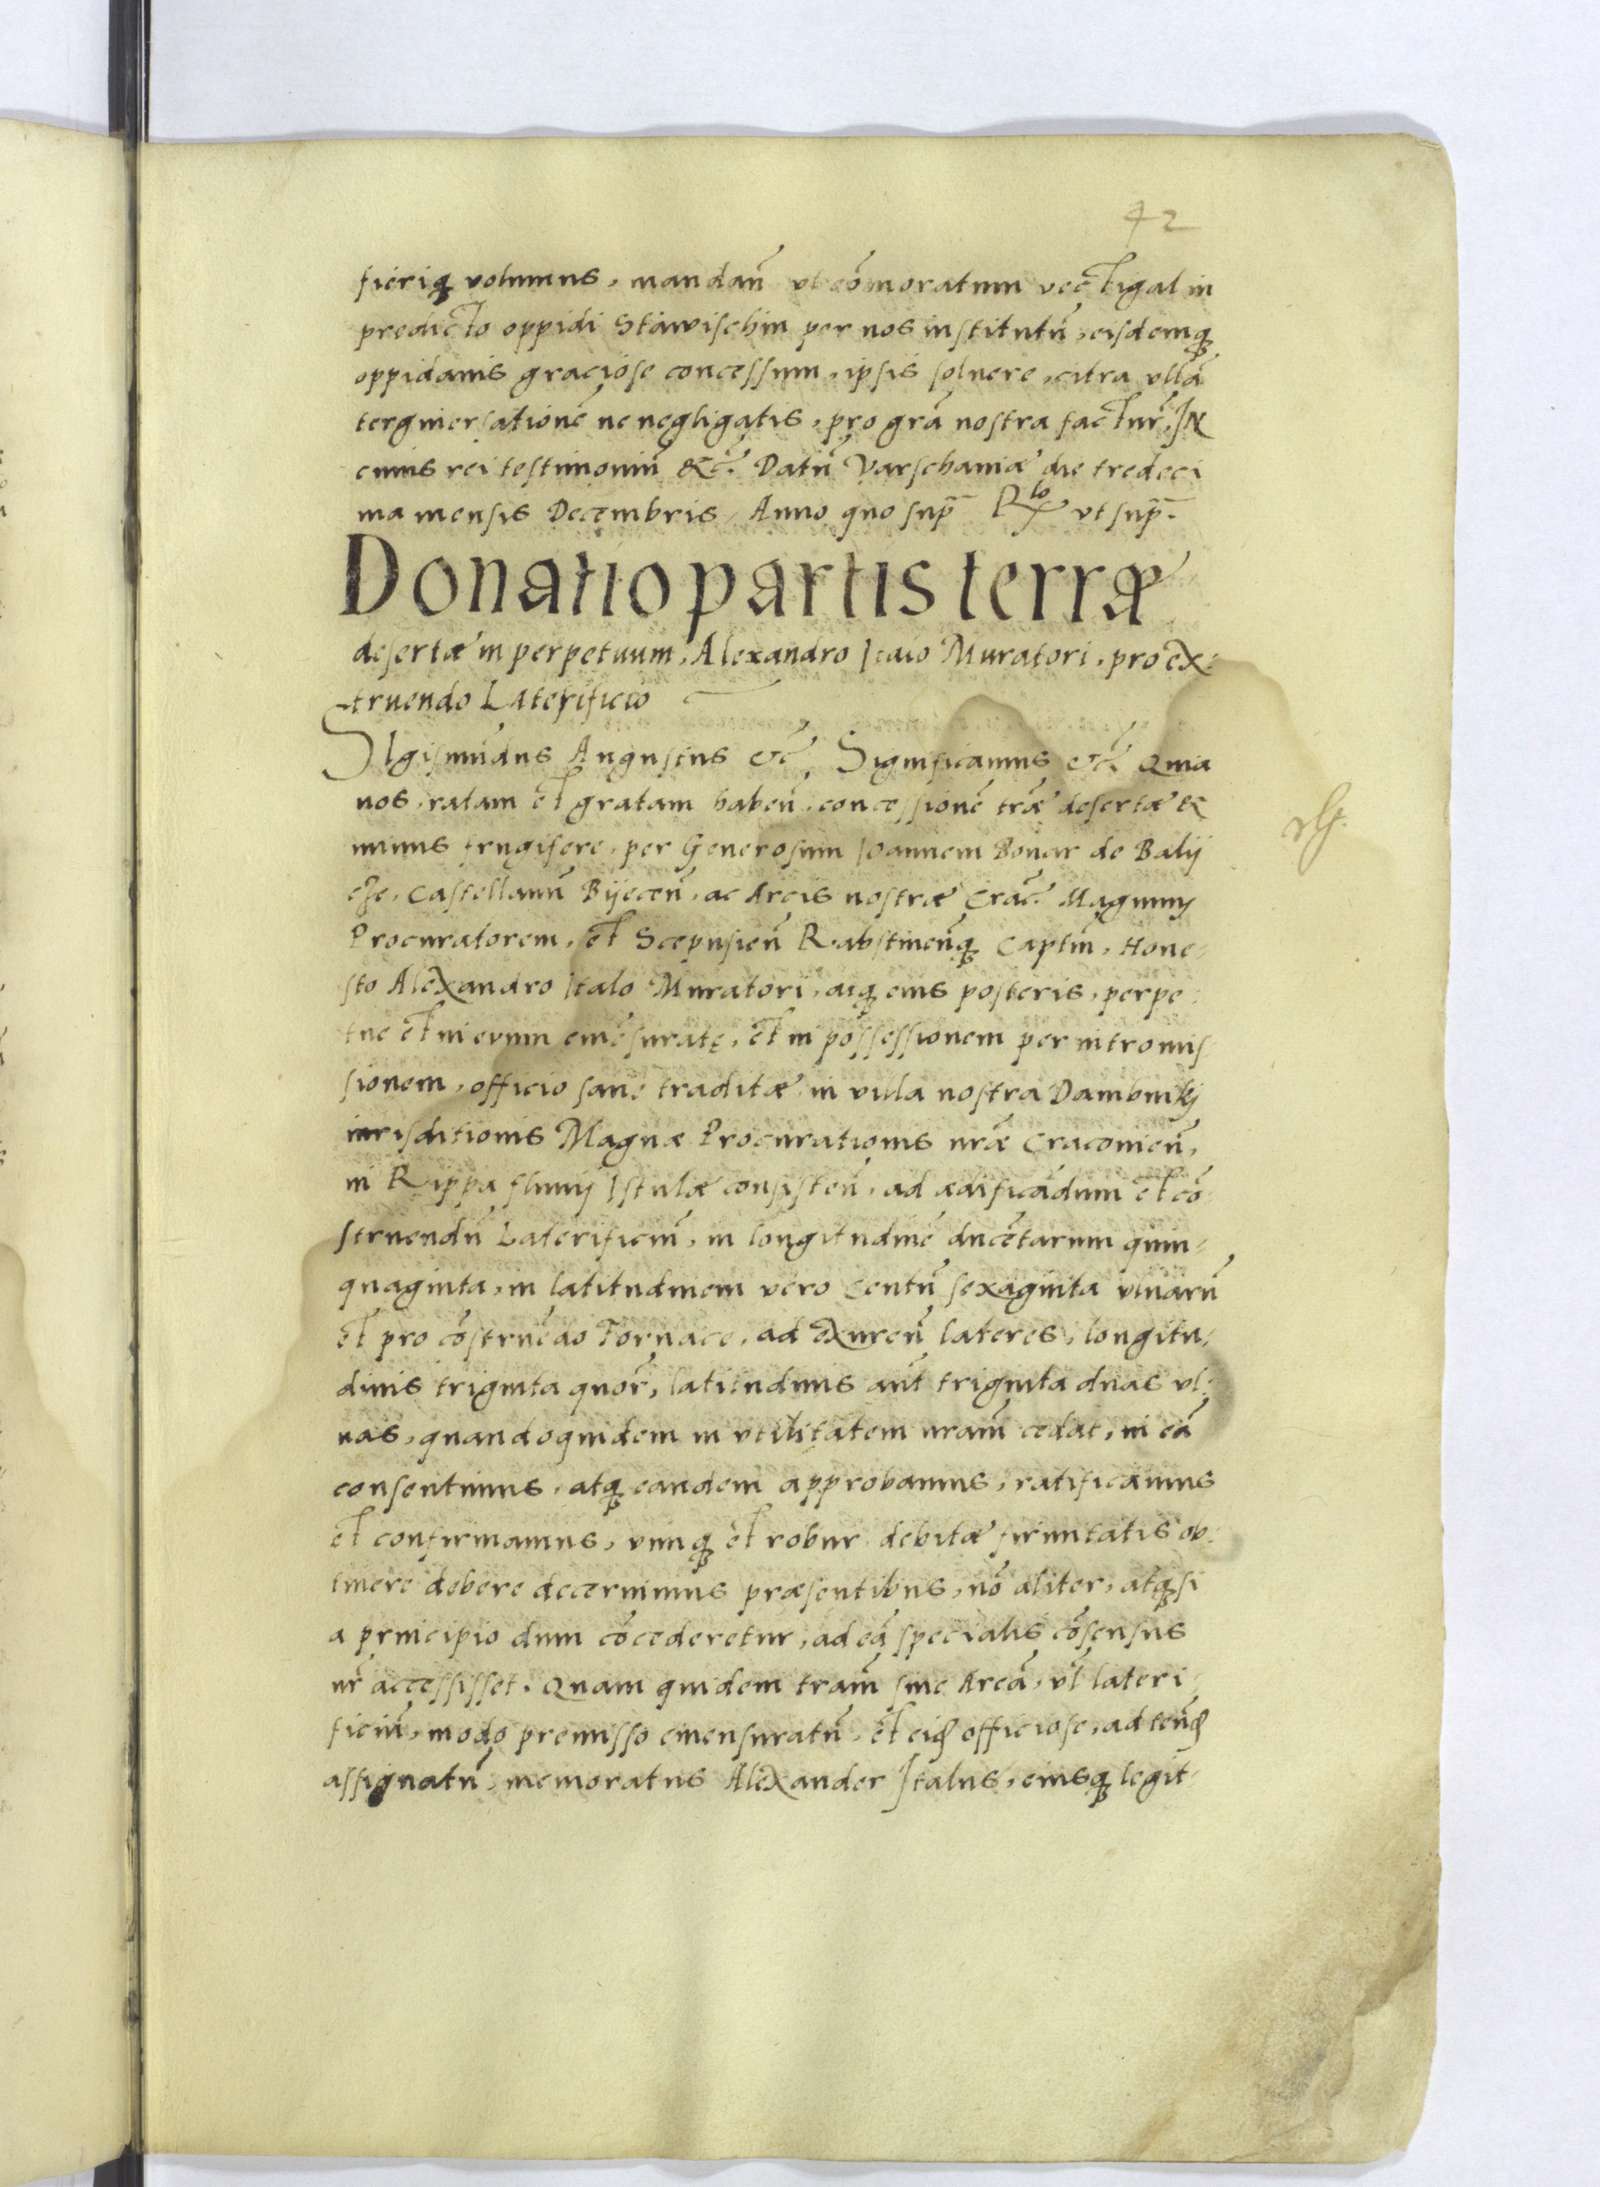 42
fieriq volumus, mandan̄ ut cōmoratum vectigal in
predicto oppidi Stawischin per nos institutū, eisdemq
oppidanis graciose concessum, ipsis soluere, citra ullā
tergiuersationē ne negligatis, pro grā nostra facturi, IN
cuius rei testimoniū &c̄. Datū Varschauiæ die tredeci
ma mensis Decembris, Anno quo supr̄a Rlo ut supr̄a.
Donatio partis terræ
desertæ in perpetuum, Alexandro Italo Muratori, pro ex-
truendo Laterificio
SIgismūdus Augustus etc̄, Significamus etc̄. Quia
nos, ratam et gratam haben̄, concessionē trǣ desertæ &
minus frugifere, per Generosum Ioannem Bonar de Balij
cze, Castellanū Bijecen̄, ac Arcis nostræ Crac̄. Magnum
Procuratorem, et Scepusien̄ Rabstinen̄q Captn̄, Hone-
sto Alexandro Italo Muratori, atq eius posteris, perpe-
tue et in euum emēsuratę, et in possessionem per intromis
sionem, officio sane traditæ in villa nostra Dambnikj
iurisditionis Magnæ Procurationis nrǣ Cracouien̄,
in Rippa fluuij Istulæ consisten̄, ad ædificādum et cō
struendū Laterificiū, in longitudinē ducētarum quin-
quaginta, in latitudinem vero centū sexaginta vlnarū
et pro cōstruēdo fornace, ad exuren̄ lateres, longitu-
dinis triginta quor̄, latitudinis aūt triginta duas vl-
nas, quandoquidem in vtilitatem nram̄ cedat, in eā
consentimus, atq eandem approbamus, ratificamus
et confirmamus, vimq et robur debitæ firmitatis ob-
tinere debere decernimus præsentibus, nō aliter, atq si
a principio dum cōcederetur, ad eā specialis cōsensus
nr̄ accessisset. Quam quidem tram̄ siue Areā, vl̄ lateri-
ficiū, modo premisso emensuratū, et eid officiose, ad tenēd
assignatū, memoratus Alexander Italus, eiusq legit-